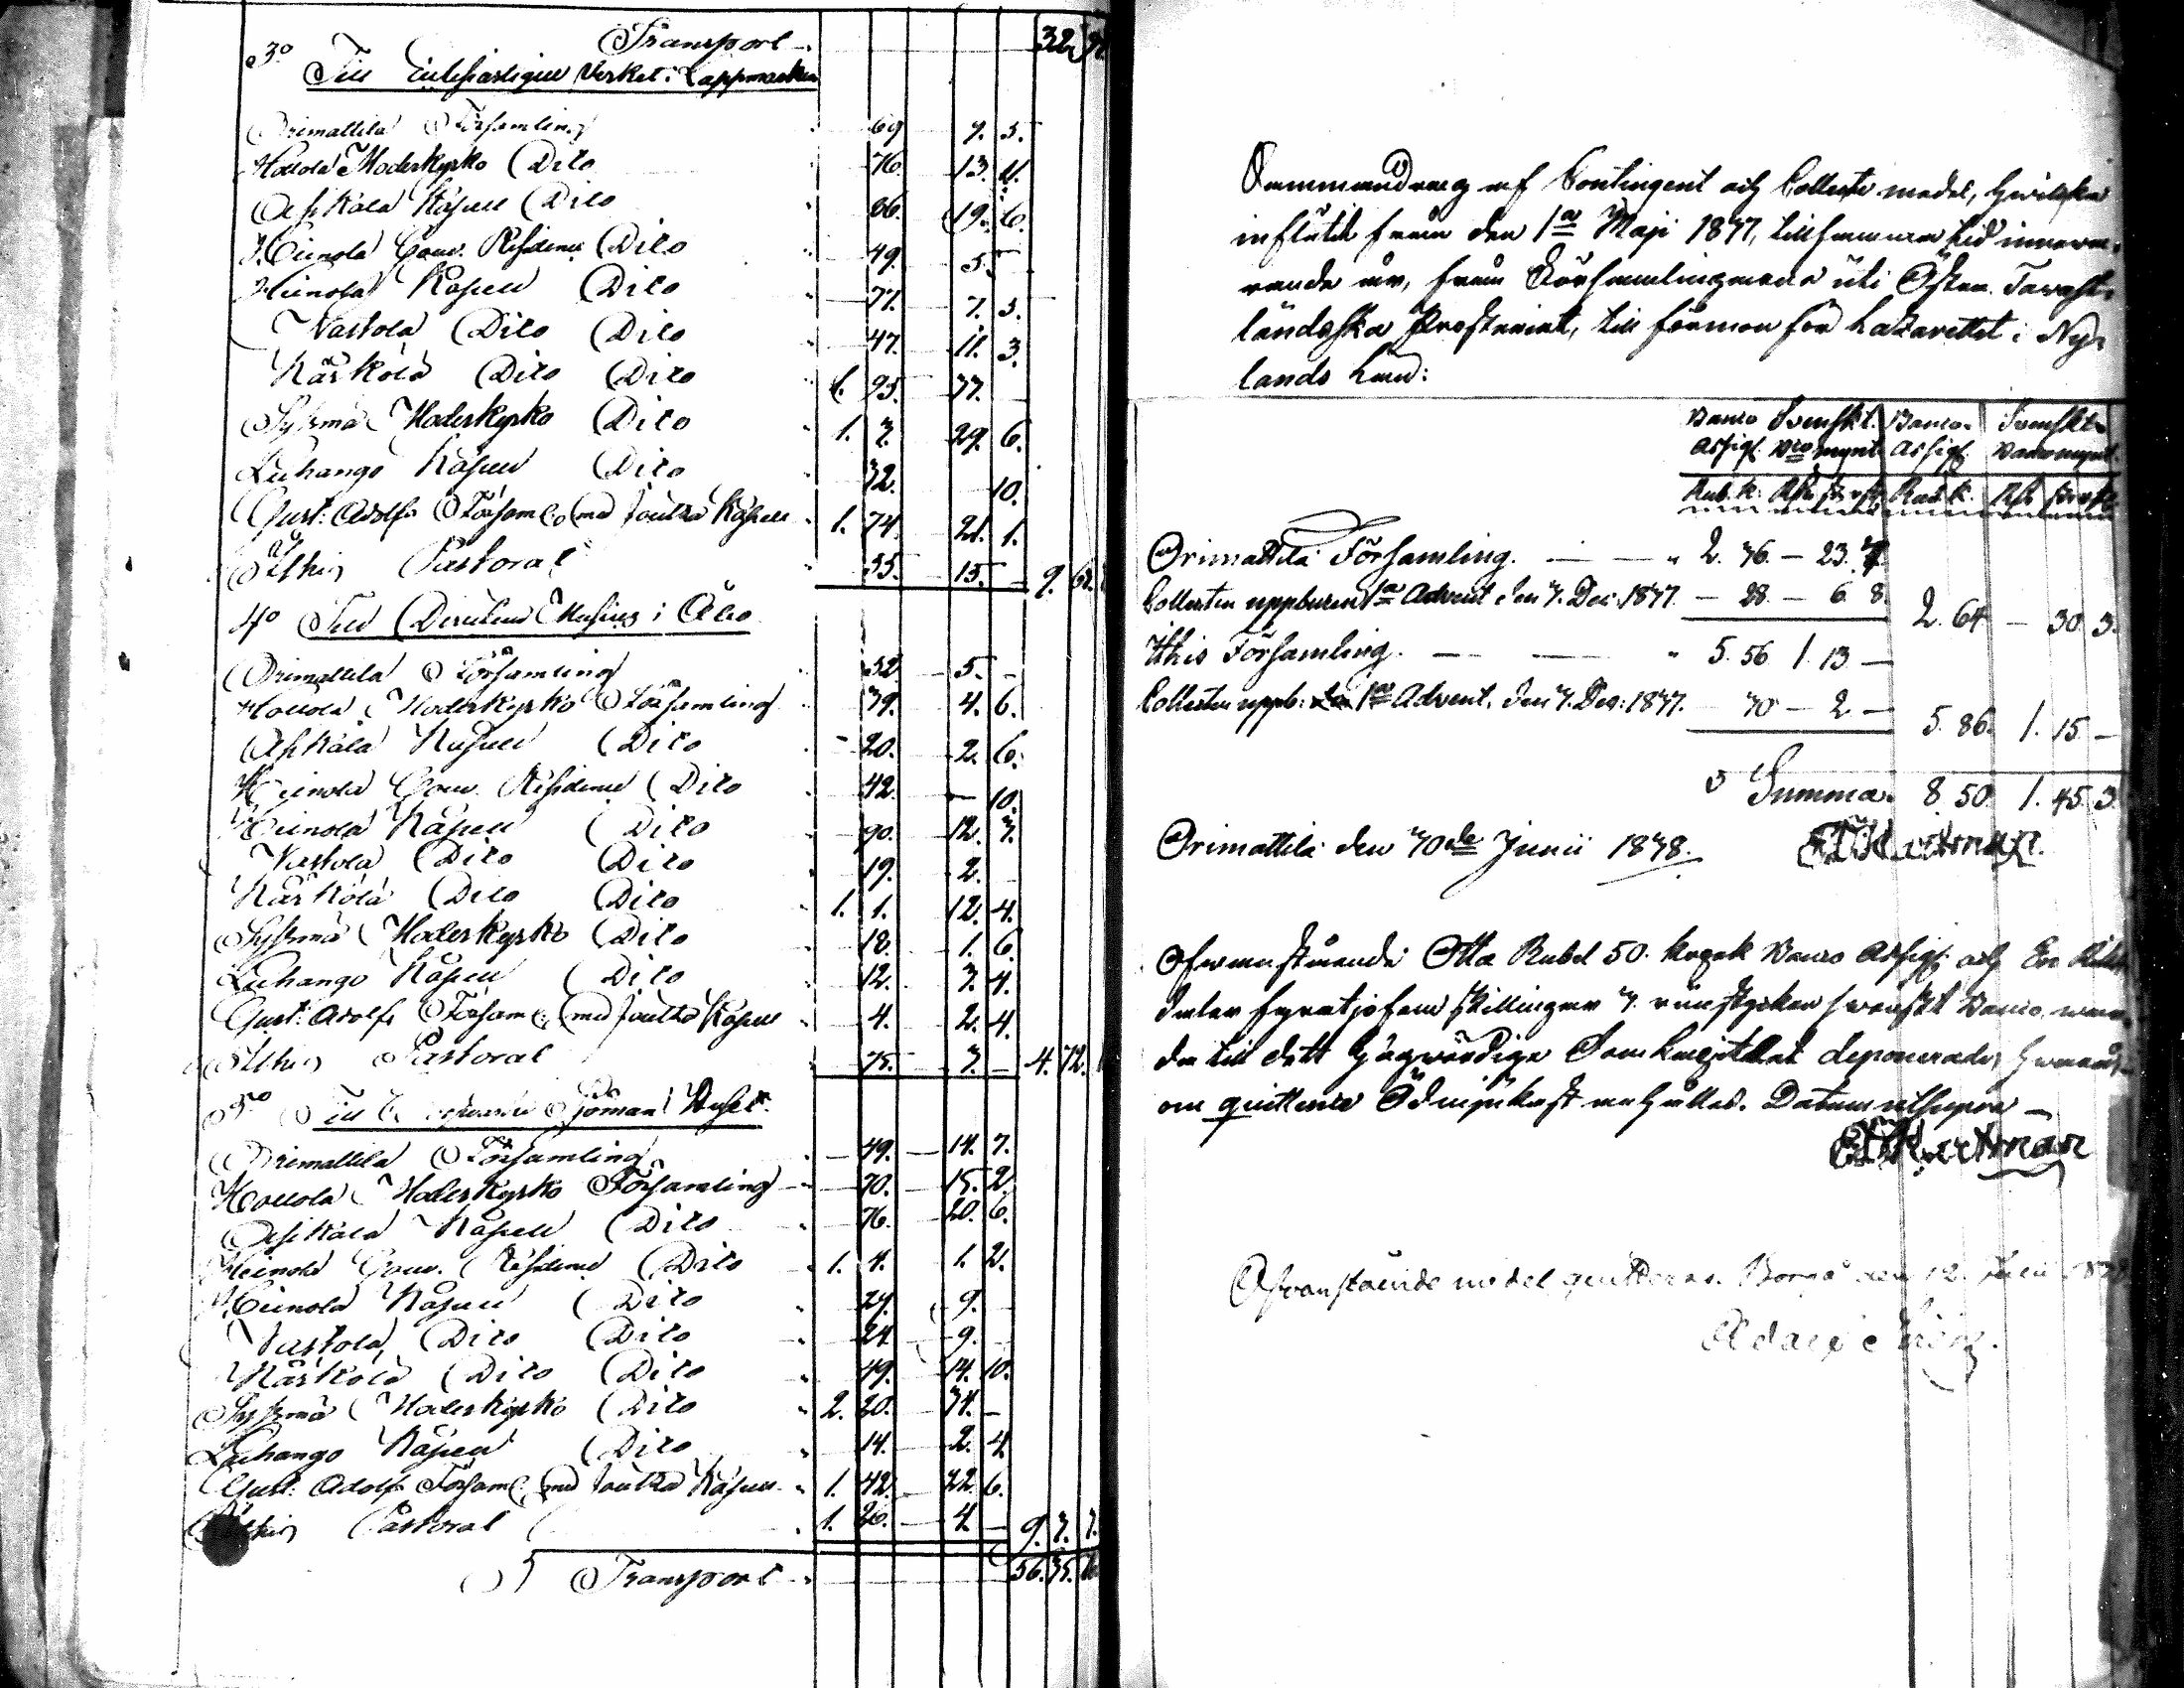 Transport 32.
3o Till Ecclesiastique Verket i Lappmarken
Orimattila Församling 69 9. 3.
Hollola Moderkyrko Dito 76. 13. 11.
Asikkala Kapell Dito 86. 19. 6.
Heinola Gouv. Residence Dito 49. 5. –
Heinola Kapell Dito 77. 7. 3.
Nastola Dito Dito 47. 11. 3.
Kärkölä Dito Dito 1. 95. 37. –
Sysmä Moderkyrko Dito 1. 3. 29. 6.
Luhango Kapell Dito 32. 10.
Gust: Adolfs Församl: med Joutsa Kapell 1. 74. 21. 1.
Ithis Pastorat 35. 15. – 9.
4o Till Döfstumm i Åbo
Orimattila Församling 32. 5. –
Hollola Moderkyrko Församling 39. 4. 6.
Asikkala Kapell Dito 20. 2. 6.
Heinola Gouv. Residence Dito 42. – 10.
Heinola Kapell Dito 90. 12. 3.
Nastola Dito Dito 19. 2. –
Kärkölä Dito Dito 1. 1. 12. 4.
Sysmä Moderkyrko Dito 18. 1. 6.
Luhango Kapell Dito 12. 3. 4.
Gust: Adolfs Församl: med Joutsa Kapell 4. 2. 4.
Ithis Pastorat 75. 3. – 4. 72.
5o Till Sjöman Huset
Orimattila Församling 49. 14. 7.
Hollola Moderkyrko Församling 70. 15. 2.
Asikkala Kapell Dito 76. 20. 6.
Heinola Gouv. Residence Dito 1. 4. 1. 2.
Heinola Kapell Dito 24. 9. –
Nastola Dito Dito 24. 9. –
Kärkölä Dito Dito 49. 14. 10.
Sysmä Moderkyrko Dito 2. 20. 34. –
Luhango Kapell Dito 14. 2. 4
Gust: Adolfs Församl: med Joutsa Kapell 1. 42. 22. 6.
Ithis Pastorat 1. 26. 4. – 9. 3. 7.
Transport 56. 35.
Sammandrag af Contingent och Collecte medel, hwilka
influtit från den 1a Maji 1817, till samma tid innewa-
rande år, från Församlingarne uti Östra Tavast-
ländska Prosteriet, till förmon för Lazarettet i Ny-
lands Län:
Banco Svenskt. Banco Svenskt
Assign. Bco mynt. Assign. Banco mynt.
Rub. k. Rdr sk rst Rub. k. Rdr sk rst
Orimattila Församling. — — 2. 36. – 23. 7
Collecten uppburen 1a Advent den 7. Dec: 1817. – 28. – 6 8. 2. 64 – 30 3.
Ithis Församling. — — 5. 56 1. 13 –
Collecten uppb: 1a Advent, den 7. Dec: 1817. – 30 – 2 – 5. 86. 1. 15 –
Summa. 8. 50. 1. 45. 3.
Orimattila den 30de Junii 1818. Hartman.
Ofwanstående Otta Rubel 50. kopek Banco Assign. och En Riks
daler fyratiofem skillingar 3. runstycken svenskt Banco,
de till dett högwördige Dom Capitlet deponerade, hwar-
om quittence Ödmjukast anhålles. Datum utsupra –
Hartman
Ofvanstående medel quitteras. Borgå den 12. Julii